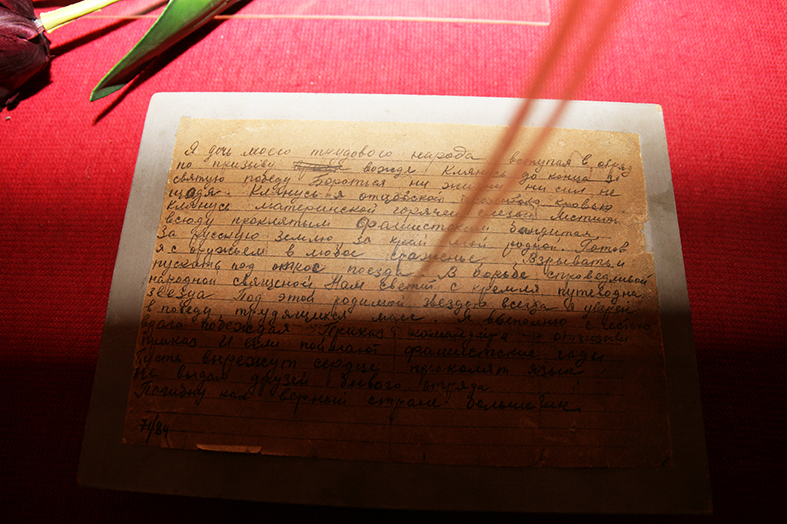 Я дочь моего трудового народа вступая в отряд
по призыву вождя Клянусь до конца за
святую победу Бороться ни жизни ни сил не
щадя. Клянусь я отцовской кровью.
Клянусь материнской горячей слезой Мстить
всюду проклятым фашистским бандитам
За русскую землю за край мой родной. Готов
я с оружьем в любое сраженье Взрывать и
пускать под откос поезда. В борьбе справедливой
народной священной Нам светит с кремля путеводна
звезда Под этой родимой звездою всегда я уверен
в победу трудящихся масс. Я выполню с честью
врага побеждая Приказ командира отчизны
приказ И если поймают фашистские гады
Пусть вырежут сердце проколят язык
Не выдам друзей боевого отряда
Погибну как верный стране большевик
71/84